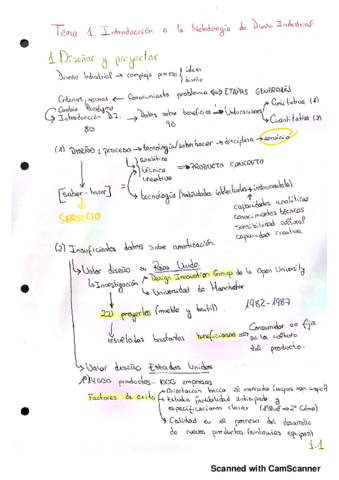 Tema 1. Introducción a la Metodología de Diseño Industrial
1. Diseñar y proyectar
Diseño Industrial → complejo proceso { ideas
diseño
Criterios, normas ← Conocimiento problema ⟷ ETAPAS GENERALES
Cambio
Introducción D.I. → Datos sobre beneficios → Valoraciones
Cualitativa (1)
Cuantitativa (2)
80
90
(1) DISEÑO: proceso → tecnología/saber hacer → disciplina → servicio
analítico
técnico
creativo
⟹ PRODUCTO CONCRETO
[saber-hacer] =
tecnología (habilidades intelectuales + instrumentales)
SERVICIO
capacidades analíticas
conocimientos técnicos
sensibilidad cultural
capacidad creativa
(2) Insuficientes datos sobre amortización.
Valor diseño en Reino Unido.
Investigación
Design Innovation Group de la Open University
Universidad de Manchester
221 proyectos (mueble y textil).
1982-1987
resultados bastantes beneficiosos →
Consumidor se fija
en la cultura
del producto.
Valor diseño Estados Unidos
1º) 14000 productos - 1000 empresas
Factores de éxito
Orientación hacia el mercado
Estudio factibilidad anticipado y
especificaciones claras
Calidad en el proceso del desarrollo
de nuevos productos.
1.1
Scanned with CamScanner